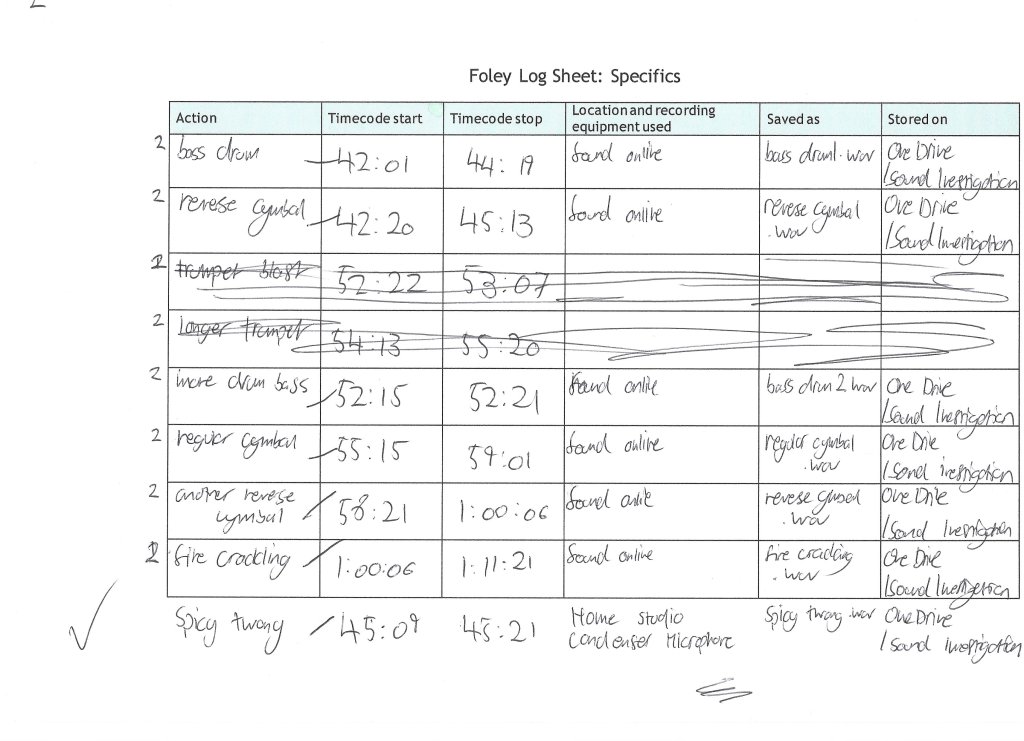 2
Foley Log Sheet: Specifics
Action Timecode start Timecode stop Location and recording equipment used Saved as Stored on
2 bass drum 42:01 44:19 found online bass drum1.wav One Drive
/Sound Investigation
2 reverse cymbal 42:20 45:13 found online reverse cymbal One Drive
.wav /Sound Investigation
2 trumpet blast 52:22 53:07
2 Longer trumpet 54:13 55:20
2 more drum bass 52:15 52:21 found online bass drum 2 wav One Drive
/Sound Investigation
2 regular cymbal 55:15 59:01 found online regular cymbal One Drive
.wav /Sound investigation
2 another reverse 58:21 1:00:06 found online reverse One Drive
cymbal .wav /Sound Investigation
2 fire crackling 1:00:06 1:11:21 found online fire crackling One Drive
.wav /Sound Investigation
Spicy twang 45:09 45:21 Home studio Spicy twang.wav One Drive
Condenser Microphone /Sound Investigation